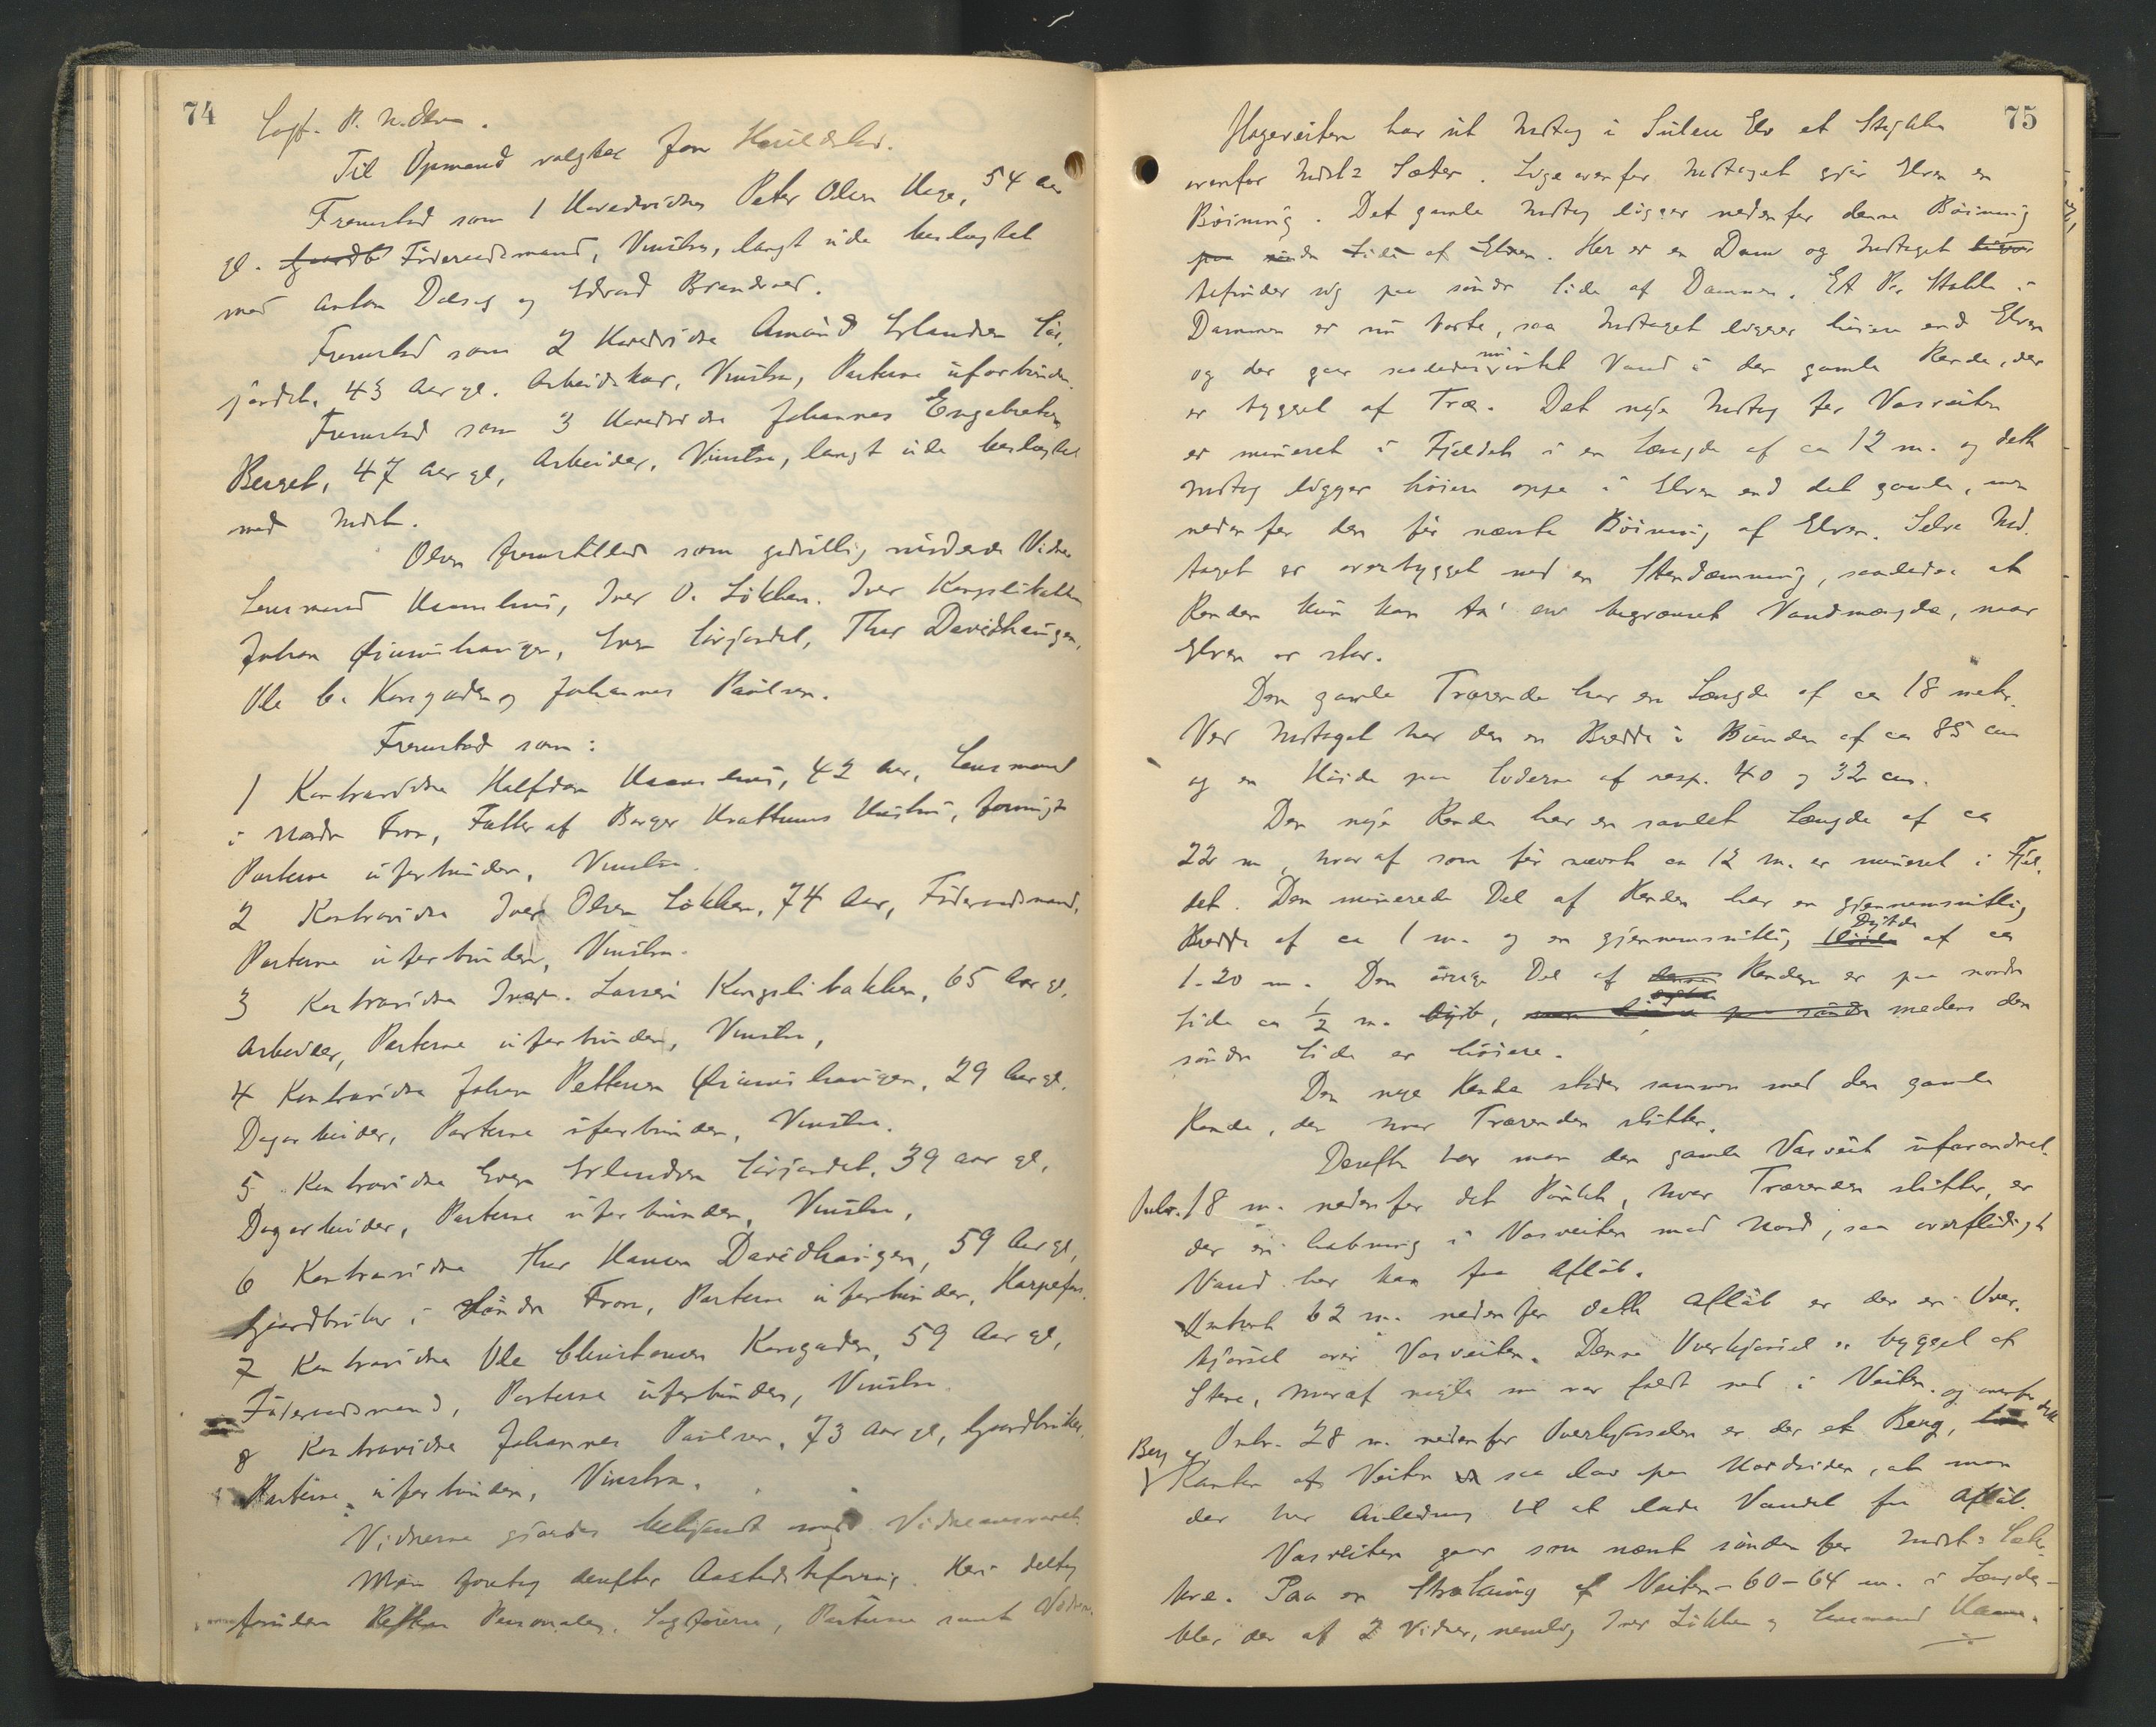 74
Sagf. P. N. Olsen.
Til Opmand valgtes Jon
Fremstod som 1 Hovedvidne Peter Olsen Hage, 54 Aar
gl. Föderaadsmand, Vinstra, langt ude beslægtet
med Anton og Edvard
Fremstod som 2 Hovedvidne Amund Erlandsen Lör,
jordet, 43 Aar gl. Arbeidskar, Vinstra, Parterne uforbunden.
Fremstod som 3 Hovedvidne Johannes Engebretsen
Berget, 47 Aar gl, Arbeider, Vinstra, langt ude beslægtet
med Indst.
Olsen fremstillede som godvillig mödende Vidner
Lensmand Iver O. Lökken, Iver Kongslibakken
Johan Öiumshaugen, Even Lörjordet, Thor Davidhaugen,
Ole C. Kongaden og Johannes Paulsen.
Fremstod som:
1 Kontravidne Halfdan 42 Aar, Lensmand
i Nordre Fron, Fætter af Borger Hustru, forövrigt
Parterne uforbunden, Vinstra.
2 Kontravidne Iver Olsen Lökken, 74 Aar, Föderaadsmand,
Parterne uforbunden, Vinstra.
3 Kontravidne Iver Larsen Kongslibakken, 65 Aar gl,
Arbeider, Parterne uforbunden, Vinstra,
4 Kontravidne Johan Pettersen Öiumshaugen, 29 Aar gl.
Dagarbeider, Parterne uforbunden, Vinstra.
5 Kontravidne Even Erlandsen Lörjordet, 39 Aar gl,
Dagarbeider, Parterne uforbunden, Vinstra,
6 Kontravidne Thor Hansen Davidhaugen, 59 Aar gl,
Gjardbruker i Söndre Fron, Parterne uforbunden, Harpefos.
7 Kontravidne Ole Christensen Kongaden, 59 Aar gl,
Föderaadsmand, Parterne uforbunden, Vinstra.
8 Kontravidne Johannes Paulsen, 73 Aar gl, Gjardbruker,
Parterne uforbunden, Vinstra.
Vidnerne gjordes bekjendt med Vidneansvaret.
Man foretog derefter Aastedsbefaring. Heri deltog
foruden Rettens Personale, Sagförerne, Parterne samt Vidnerne
75
Hageveiten har sit Indtag i Sulen Elv et Stykke
ovenfor Indst.s Sæter. Lige ovenfor Indtaget gjör Elven en
Böining. Det gamle Indtag ligger nedenfor denne Böining
paa söndre Side af Elven. Her er en Dam og Indtaget
befinder sig paa söndre Side af Dammen. Et Par Stokke i
Dammen er nu borte, saa Indtaget ligger höiere end Elven
og der gaar saaledes nu intet Vand i den gamle Rende, der
er bygget af Træ. Det nye Indtag for Vasveiten
er mineret i Fjeldet i en Længde af ca 12 m. og dette
Indtag ligger höiere oppe i Elven end det gamle, men
nedenfor den för nævnte Böining af Elven. Selve Ind-
taget er overbygget med en Stendæmning, saaledes at
Renden kun kan ta' en begrænset Vandmængde, naar
Elven er stor.
Den gamle Trærende har en Længde af ca 18 metr.
Ved Indtaget har den en Bredde i Bunden af ca 85 cm
og en Höide paa Siderne af resp. 40 og 32 cm.
Den nye Rende har en samlet Længde af ca
22 m, hvoraf som för nævnt ca 12 m. er mineret i Fjel-
det. Den minerede Del af Renden har en gjennemsnitlig
Bredde af ca 1 m. og en gjennemsnitlig Dybde af ca
1.20 m. Den övrige Del af Renden er paa nordre
Side ca 1/2 m. dyb, medens den
söndre Side er höiere.
Den nye Rende stöder sammen med den gamle
Rende, der hvor Trærenden slutter.
Derefter har man den gamle Vasveit uforandret.
Omtr. 18 m. nedenfor det Punkt, hvor Trærenden slutter, er
der en Sætning i Vasveiten mod Nord, saa overflödigt
Vand her kan faa Aflöb.
Omtrent 62 m. nedenfor dette Aflöb er der en Over-
kjörsel over Vasveiten. Denne Overkjörsel er bygget af
Stene, hvoraf nogle nu var faldt ned i Veiten.
Omtr. 28 m. nedenfor Overkjörselen er der et Berg, og ovenfor dette
Berg er Kanten af Veiten saa lav paa Nordsiden, at man
der har Anledning til at lade Vandet faa Aflöb.
Vasveiten gaar som nævnt sönden for Indst.s Sæter-
Paa en Strækning af Veiten - 60-64 m. i Længde -
blev der af 2 Vidner, nemlig Iver Lökken og Lensmand